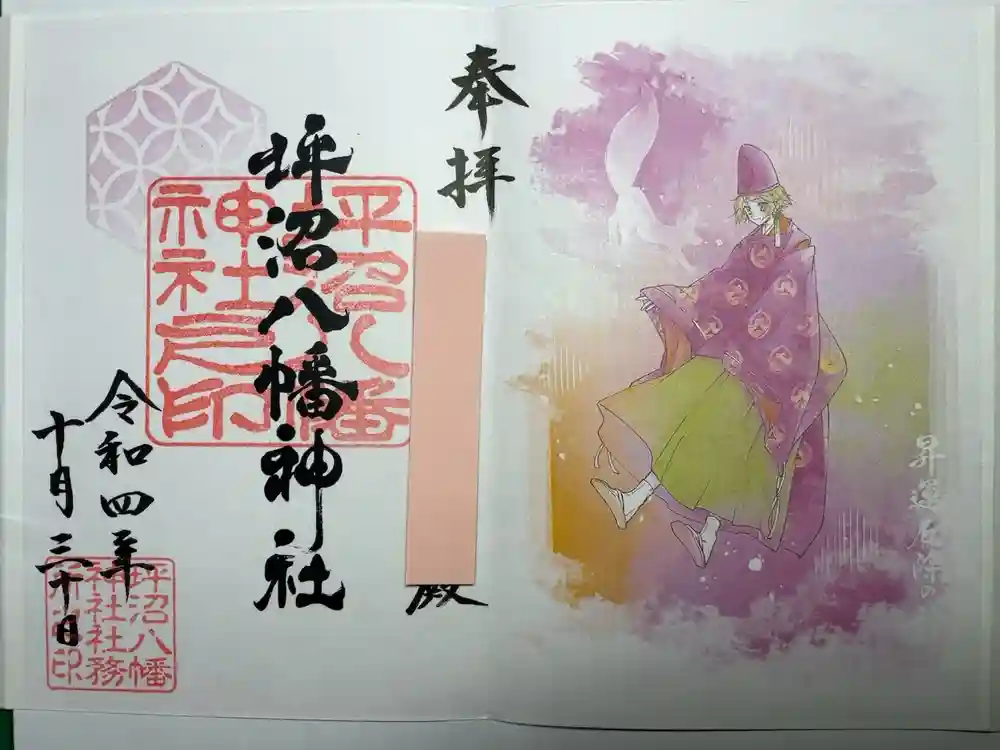 奉拝
坪沼八幡神社
令和四年
十月三十日
殿
坪沼八幡
神社之印
坪沼八幡
神社社務
所之印
昇運厄除の